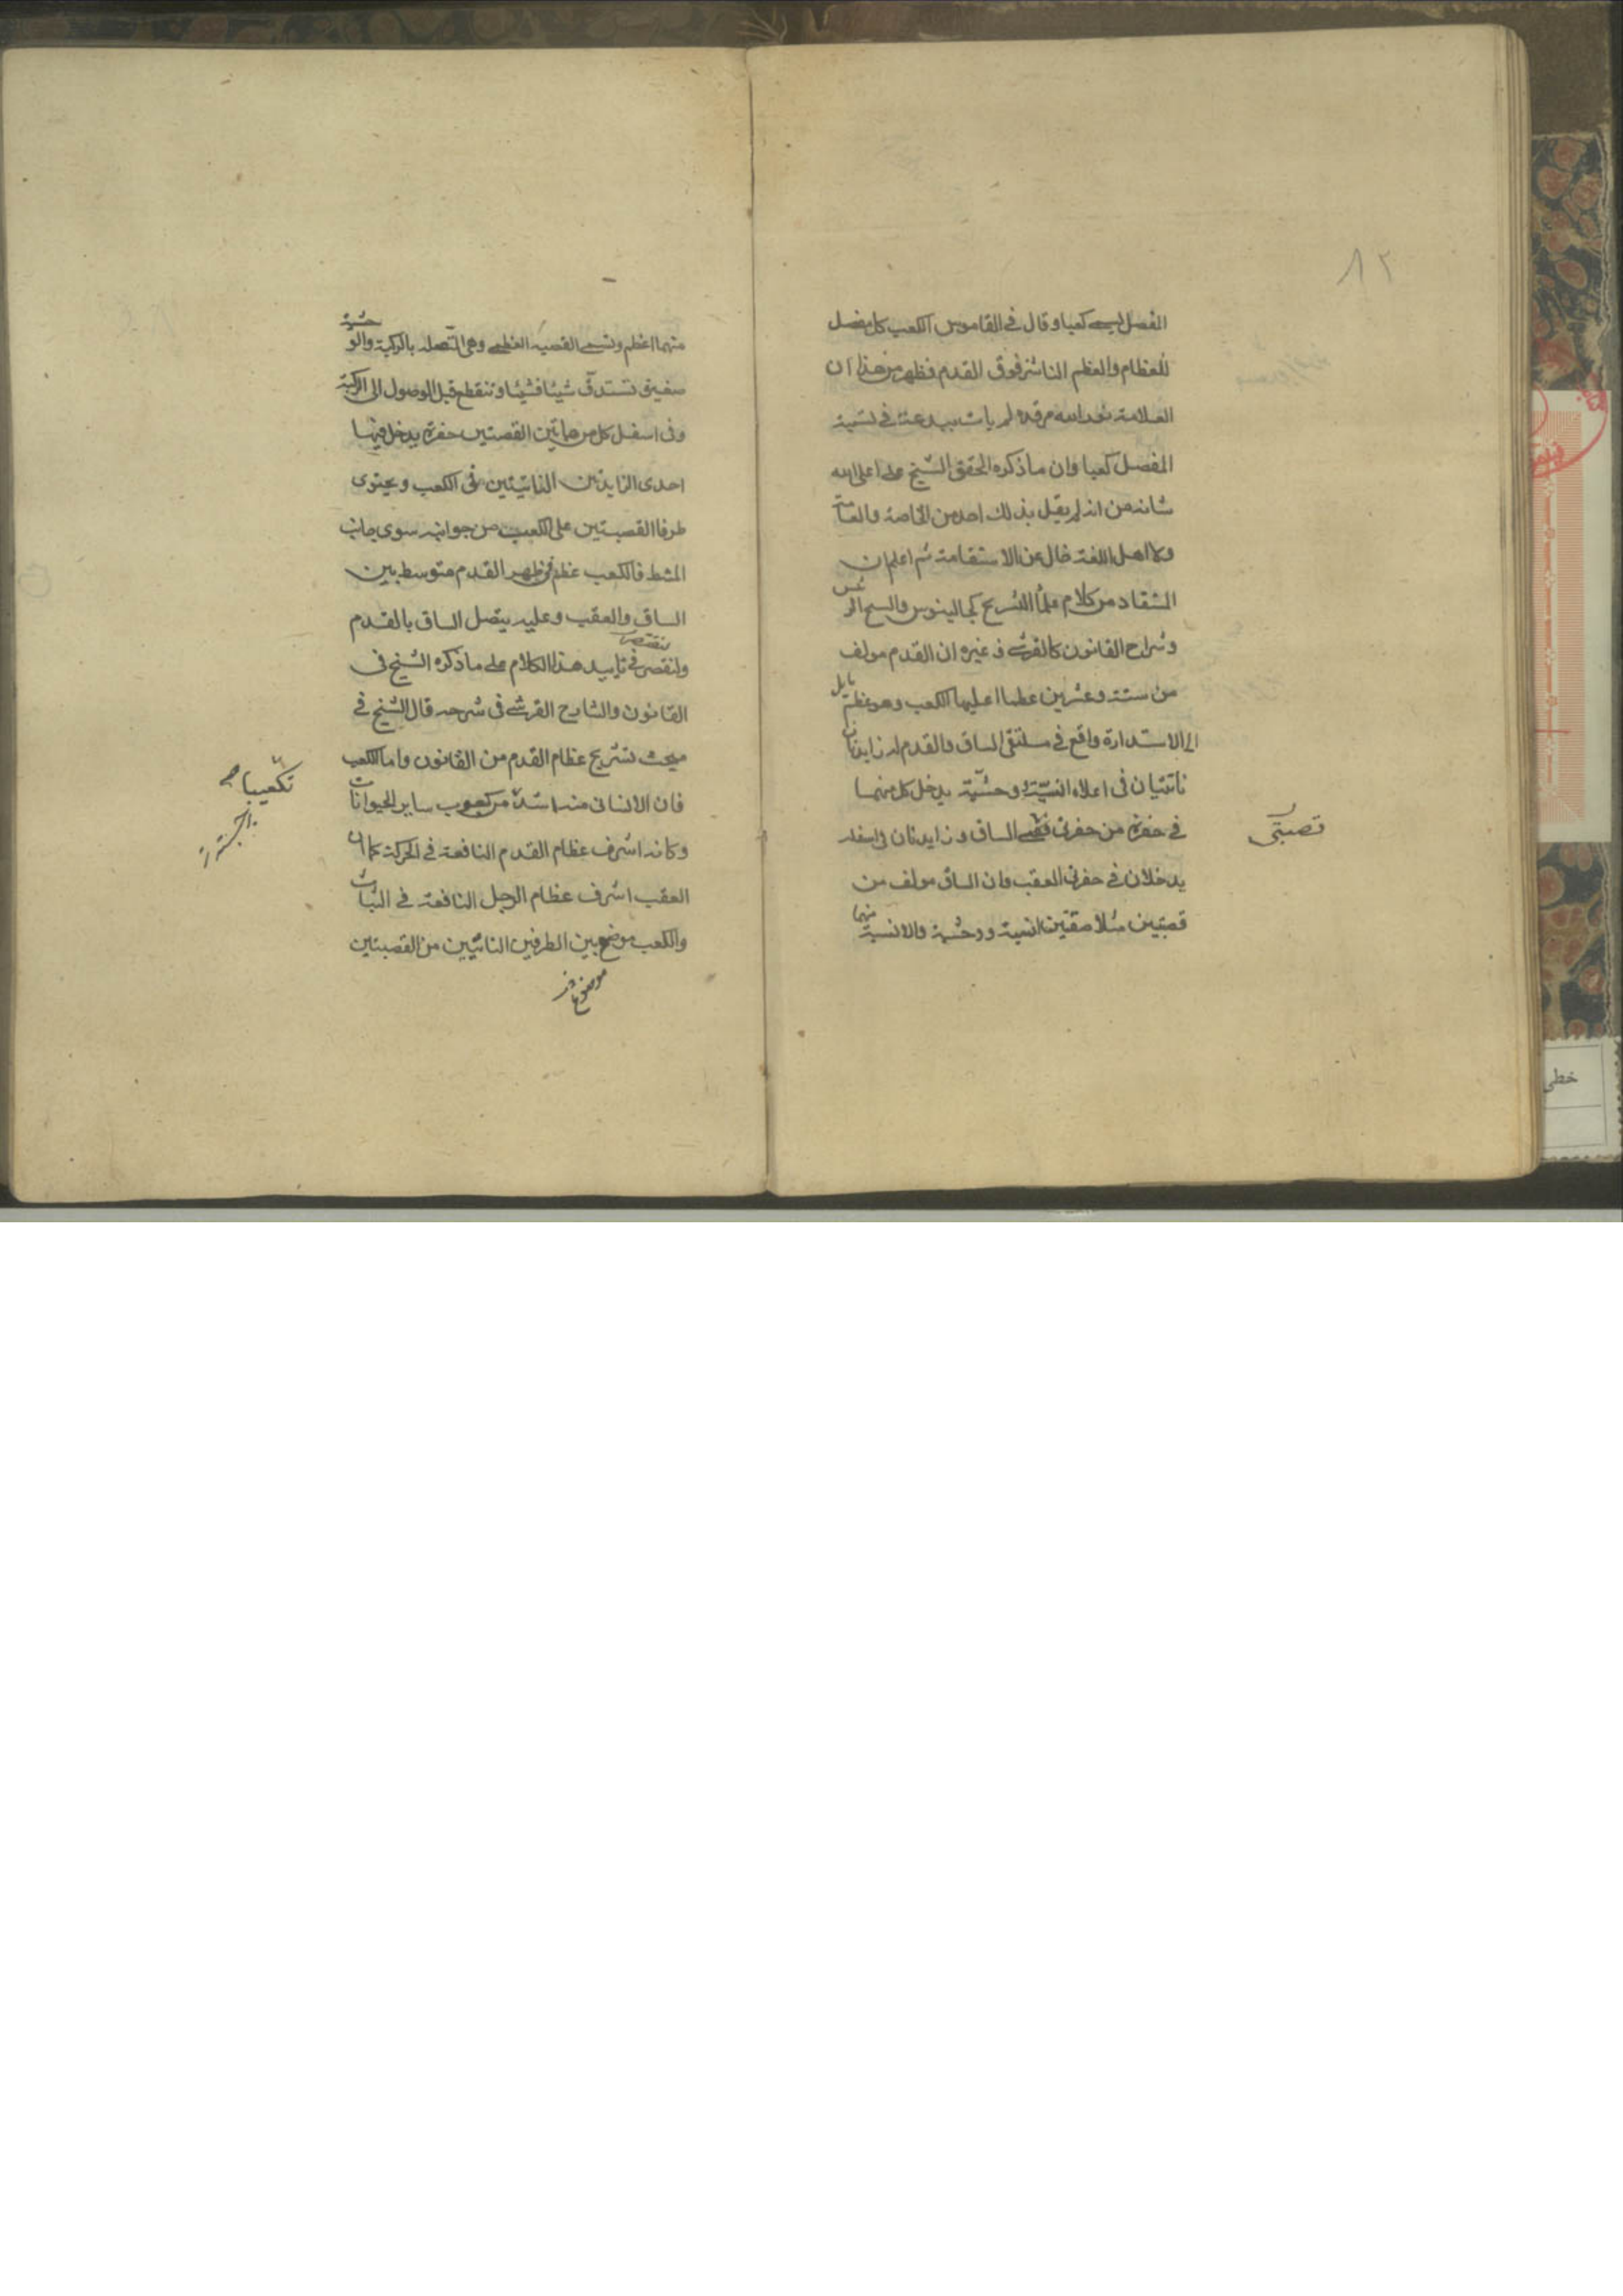 ٨٢
المفصل ليسمى كعبا وقال في القاموس الكعب كل مفصل
للعظام والعظم الناشز فوق القدم فظهر من هذا ان
العلامة نور الله مرقده لم يات ببدعة في تسمية
المفصل كعبا وان ما ذكره المحقق الشيخ على اعلى الله
شانه من انه لم يقل بذلك احد من الخاصة والعامة
ولا اهل اللغة خال عن الاستقامة ثم اعلم ان
المستفاد من كلام علماء التشريح كجالينوس والشيخ الرئيس
وشراح القانون كالقرشي وغيره ان القدم مولف
من ستة وعشرين عظما اعليها الكعب وهو عظم مايل
الى الاستدارة واقع في ملتقى الساق والقدم له زايدتان
ناتئتيان في اعلاه انسيّة ووحشيّة يدخل كل منهما
في حفرة من حفرتي قصبتي الساق وزايدتان في اسفله
قصبتي
يدخلان في حفرتي العقب وان الساق مولف من
قصبتين متلاصقتين انسية ووحشية والانسية منهما
منهما اعظم وتسمى القصبة العظمى وهي المتصلة بالركبة والوحشية
صغيرة تستدق شيئا فشيئا وتنقطع قبل الوصول الى الركبة
وفي اسفل كل من هاتين القصبتين حفرة يدخل فيها
احدى الزايدتين الناتئتين في الكعب ويحتوى
طرفا القصبتين على الكعب من جوانبه سوى جانب
المشط فالكعب عظم في ظهر القدم متوسط بين
الساق والعقب وعليه يتصل الساق بالقدم
ولنقتصر في تاييد هذا الكلام على ما ذكره الشيخ في
القانون والشارح القرشي في شرحه قال الشيخ في
مبحث تشريح عظام القدم من القانون واما الكعب
فان الانسانى منه اشد من كعوب ساير الحيوانات
تكعيبا
وكانه اشرف عظام القدم النافعة في الحركة كما ان
العقب اشرف عظام الرجل النافعة في الثبات
والكعب موضع بين الطرفين الناتئين من القصبتين
موضوع
خطى